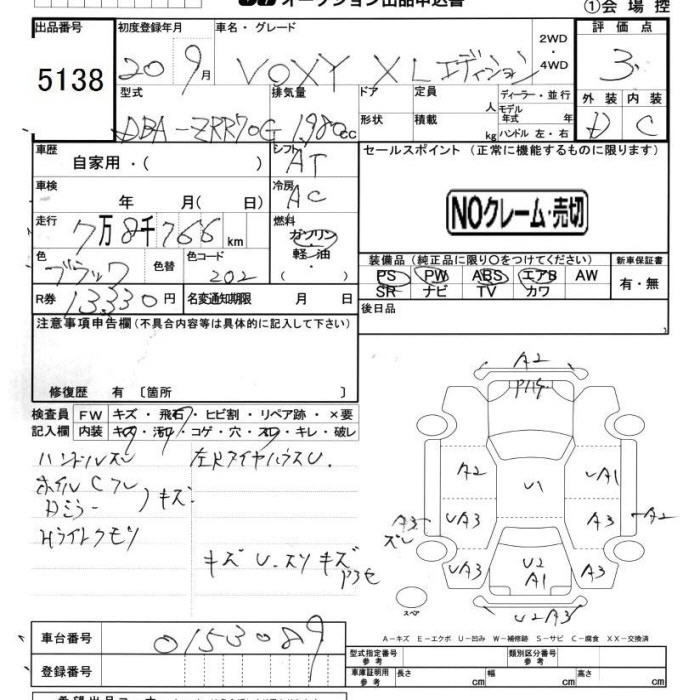 オークション出品申込書
①会場控
出品番号
5138
初度登録年月
20 9月
車名・グレード
VOXY XLエディション
2WD
・
4WD
評価点
3.
外装 内装
D C
型式
DBA-ZRR70G
排気量
1980cc
ドア
形状
定員
人
積載
kg
ディーラー・並行
モデル
年式 年
ハンドル 左・右
車歴
自家用・( )
シフト
AT
車検
年 月( 日)
冷房
AC
走行
7万8千766km
燃料
ガソリン
軽・油
・( )
色
ブラック
色替
色コード
202
R券
13,330円
名変通知期限 月 日
セールスポイント (正常に機能するものに限ります)
NOクレーム・売切
装備品 (純正品に限り○をつけてください)
PS PW ABS エアB AW
SR ナビ TV カワ
新車保証書
有・無
後日品
注意事項申告欄(不具合内容等は具体的に記入して下さい)
修復歴 有 〔箇所 〕
検査員
記入欄
FW キズ・飛石・ヒビ割・リペア跡・×要
内装 キズ・汚れ・コゲ・穴・スレ・キレ・破レ
ハンドルスレ
ホイルCフレ
Dミラー
キズ
Hライトクモリ
左Rタイヤハウス U.
キズ U. スリキズ
A2
A2
UA1
U1
A3
ズレ
UA3
A3
A2
UA3
U2
A1
A3
スペア
U2A3
A-キズ E-エクボ U-凹み W-補修跡 S-サビ C-腐食 XX-交換済
車台番号
0153089
登録番号
型式指定番号
参考
類別区分番号
参考
車庫証明用
参考
長さ cm 幅 cm 高さ cm
希望出品コーナー